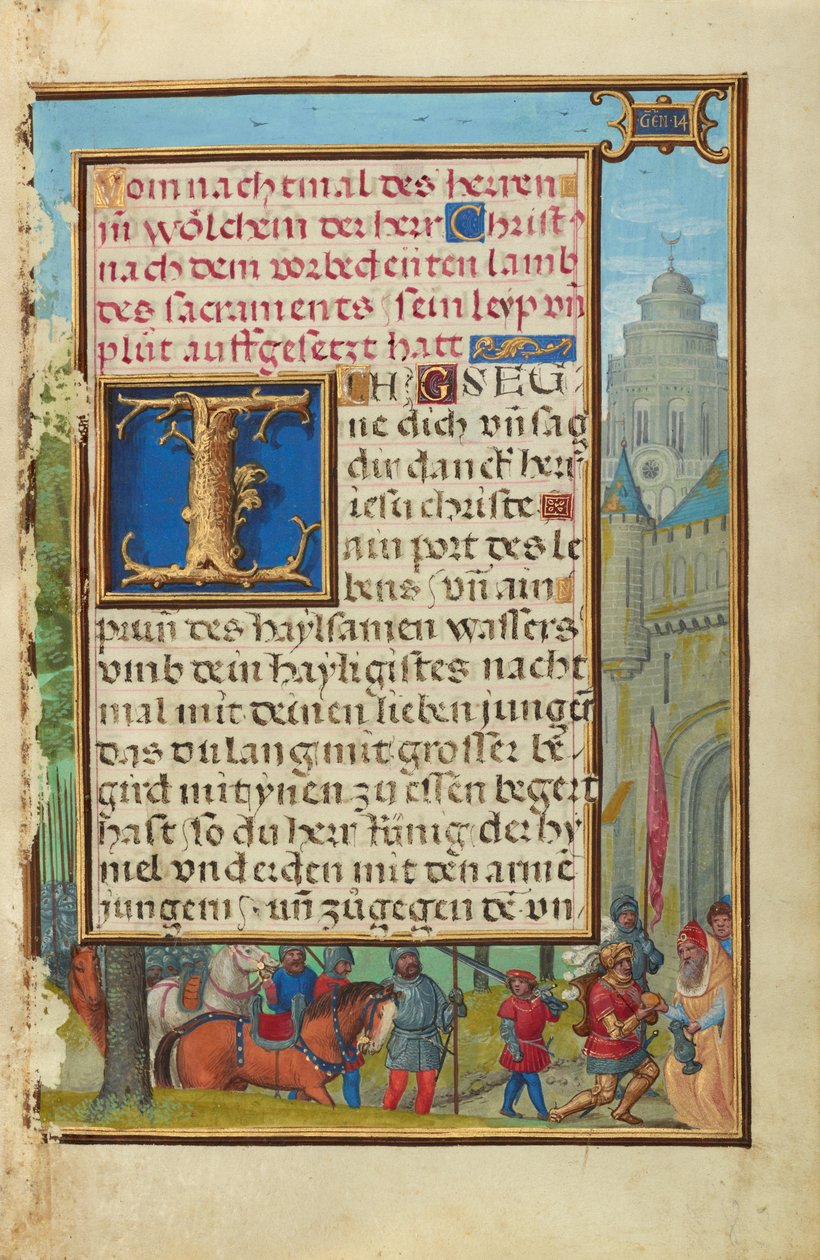 GEN·14
Vom nachtmal des herren
jn wölchem der herr Christ⁹
nach dem vorbedeuten lamb
des sacraments / sein leyp vn̄
plut auffgesetzt hatt
ICH GSEG
ne dich vn̄ sag
dir danck herr̄
iesu christe
ain port des le
bens / vn̄ ain
prun̄ des haylsamen wassers
vmb dein hayligistes nacht
mal mit deinen lieben jungern̄
das du lang mit grosser be
gird mit ynen zu essen begert
hast / so du herr künig der hy
mel vnd erden mit den armē
jungern / vn̄ zůgegen dē vn